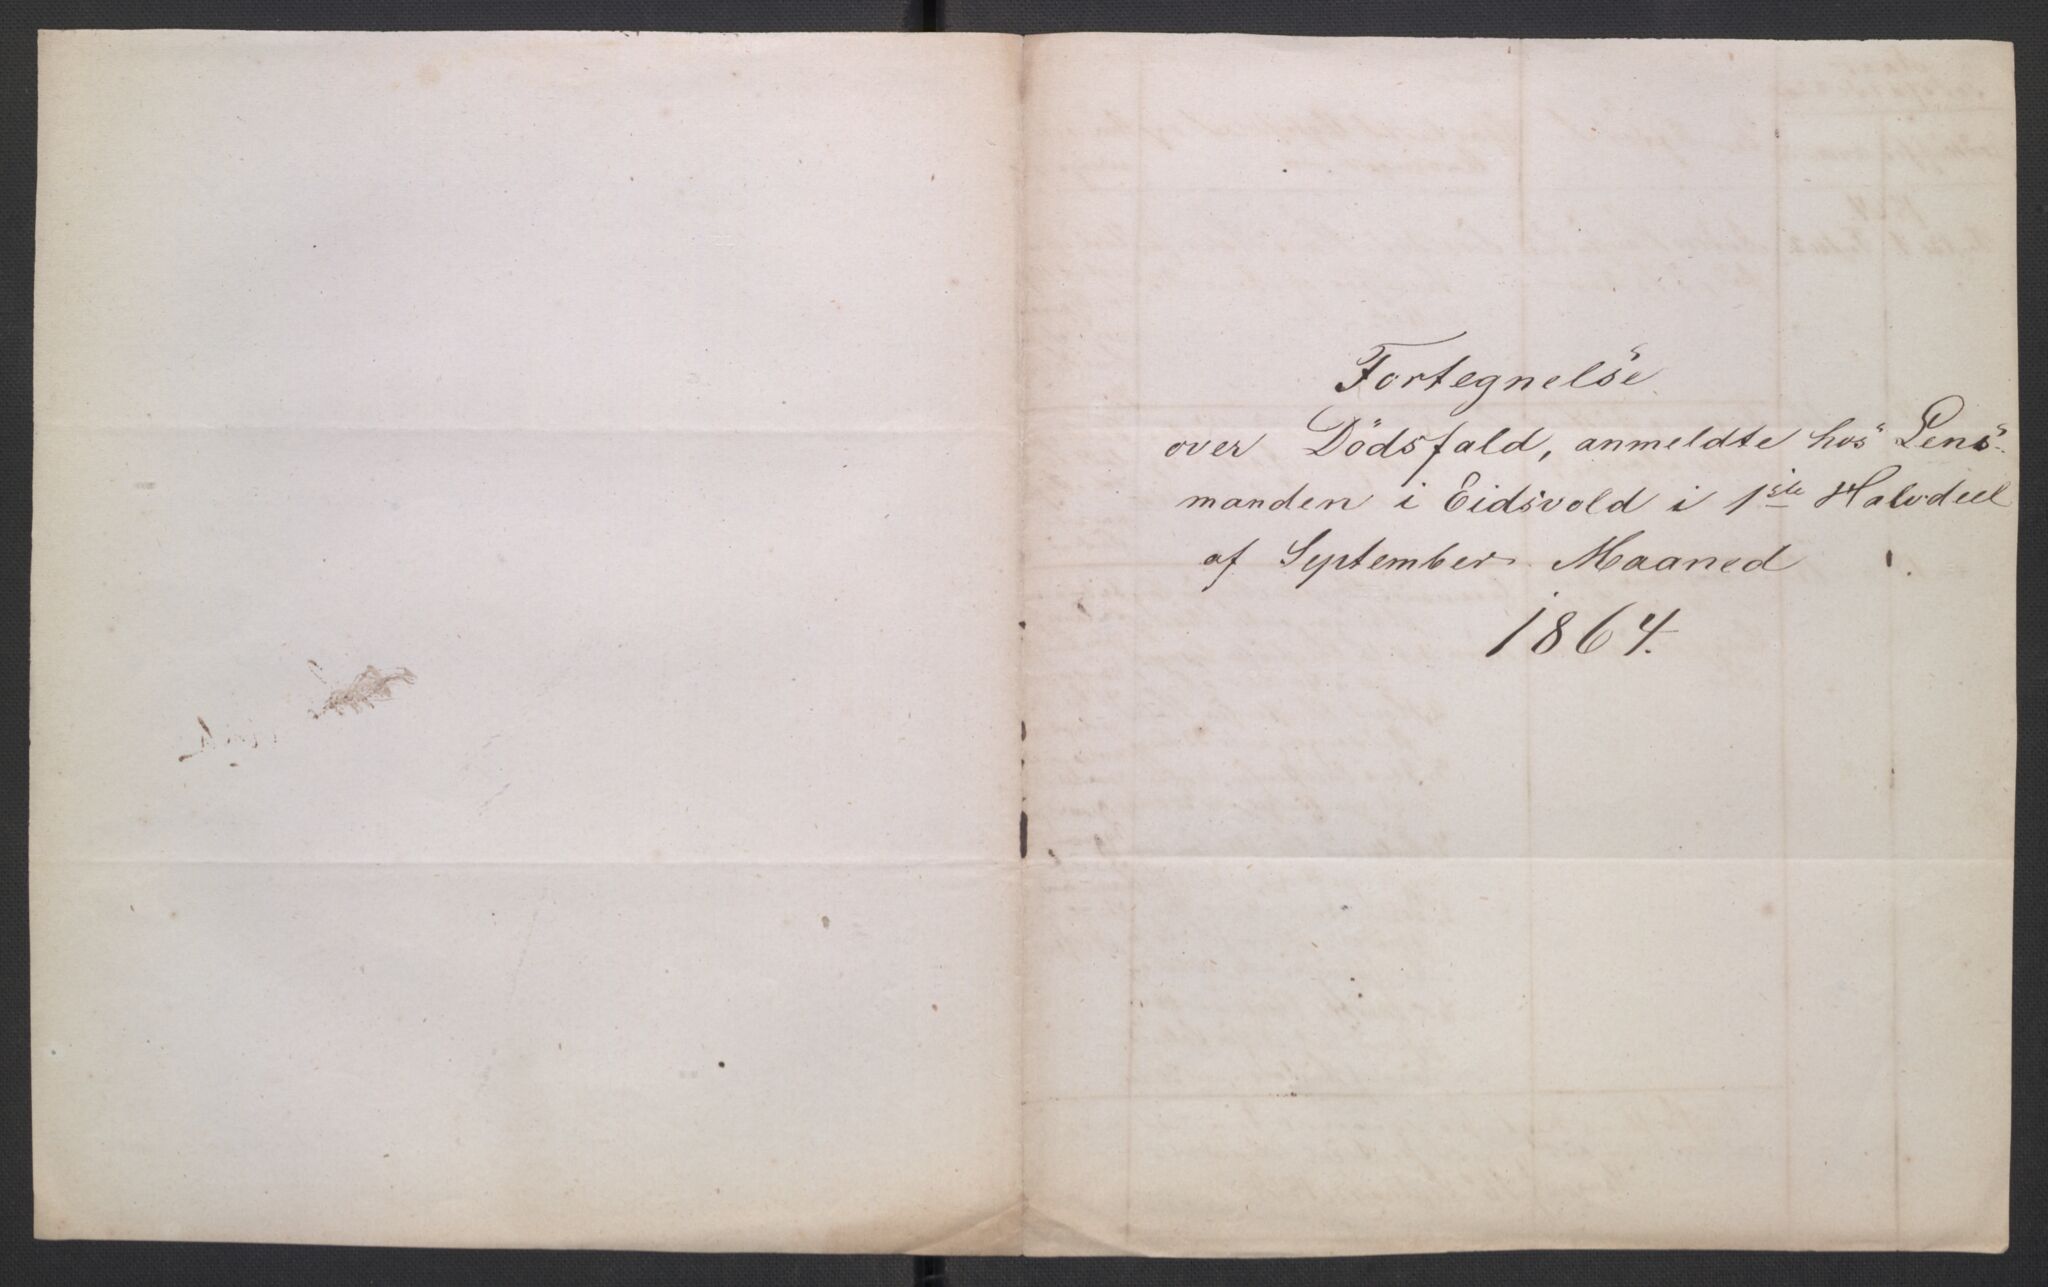 Fortegnelse
over Dödsfald, anmeldte hos Lens-
manden i Eidsvold i 1ste Halvdeel
af September Maaned
1864.